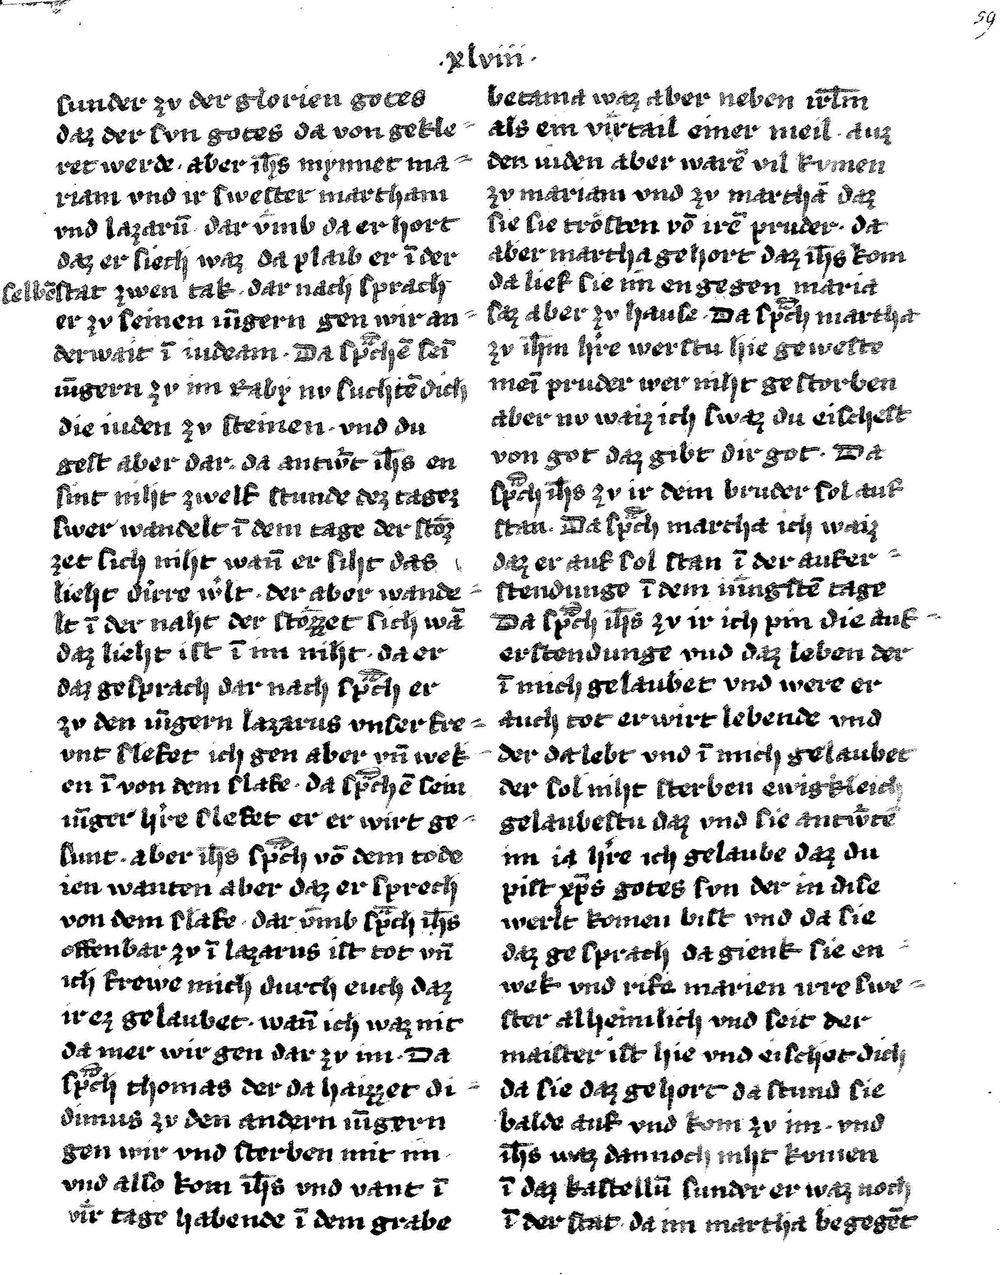 59
·xlviii·
sunder zv der glorien gotes
daz der svn gotes da von gekle⸗
ret werde· aber ih̄s mynnet ma⸗
riam vnd ir swester martham
vnd lazarū dar v̄mb da er hort
daz er siech waz da plaib er ī der
selbē stat zwen tak· dar nach sprach
er zv seinen iūgern gen wir an⸗
derwait ī iudeam· Da sp̄chē seī
iūgern zv im Raby nv suchtē dich
die iuden zv steinen· vnd du
gest aber dar· da antw̄t ih̄s en
sint niht zwelf stunde dez tagez
swer wandelt ī dem tage der stoz̄
zet sich niht wan̄ er siht das
lieht dirre w̓lt· der aber wande⸗
lt ī der naht der stoz̄zet sich wā
daz lieht ist ī im niht· da er
daz gesprach dar nach sp̄ch er
zv den iūgern lazarus vnser fre⸗
vnt slefet ich gen aber vn̄ wek⸗
en ī von dem slafe· da sp̄chē sein
iūger h̓re slefet er er wirt ge⸗
sunt· aber ih̄s sp̄ch vō dem tode
ien wanten aber daz er sprech
von dem slafe· dar v̄mb sp̄ch ih̄s
offenbar zv ī lazarus ist tot vn̄
ich frewe mich durch euch daz
ir ez gelaubet· wan̄ ich waz nit
da mer wir gen dar zv im· Da
sp̄ch thomas der da haizzet di⸗
dimus zv den andern iūgern
gen wir vnd sterben mit im·
vnd also kom ih̄s vnd vant ī
vīr tage habende ī dem grabe
betania waz aber neben irl̄m
als ein vīrtail einer meil· auz
den iuden aber warē vil kvmen
zv mariam vnd zv marthā daz
sie sie trösten vō irē pruder· da
aber martha gehort daz ih̄s kom
da lief sie im engegen maria
saz aber zv hause· Da sp̄ch martha
zv ih̄m h̓re werstu hie geweste
meī pruder wer niht gestorben
aber nv waiz ich swaz du eischest
von got daz gibt dir got· Da
sp̄ch ih̄s zv ir dem bruder sol auf
stan· Da sp̄ch martha ich waiz
daz er auf sol stan ī der aufer⸗
stendunge ī dem iūngstē tage
Da sp̄ch ih̄s zv ir ich pin die auf⸗
erstendunge vnd daz leben der
ī mich gelaubet vnd were er
auch tot er wirt lebende vnd
der da lebt vnd ī mich gelaubet
der sol niht sterben ewigkleich
gelaubestu daz vnd sie antw̄tē
im ia h̓re ich gelaube daz du
pist xp̄s gotes svn der in dise
werlt komen bist vnd da sie
daz gesprach da gienk sie en⸗
wek vnd rife marien irre swe⸗
ster alheimlich vnd seit der
maister ist hie vnd eischet dich
da sie daz gehort da stund sie
balde auf vnd kom zv im· vnd
ih̄s waz dannoch niht kvmen
ī daz kastellū sunder er waz noch
ī der stat da im martha begegēt